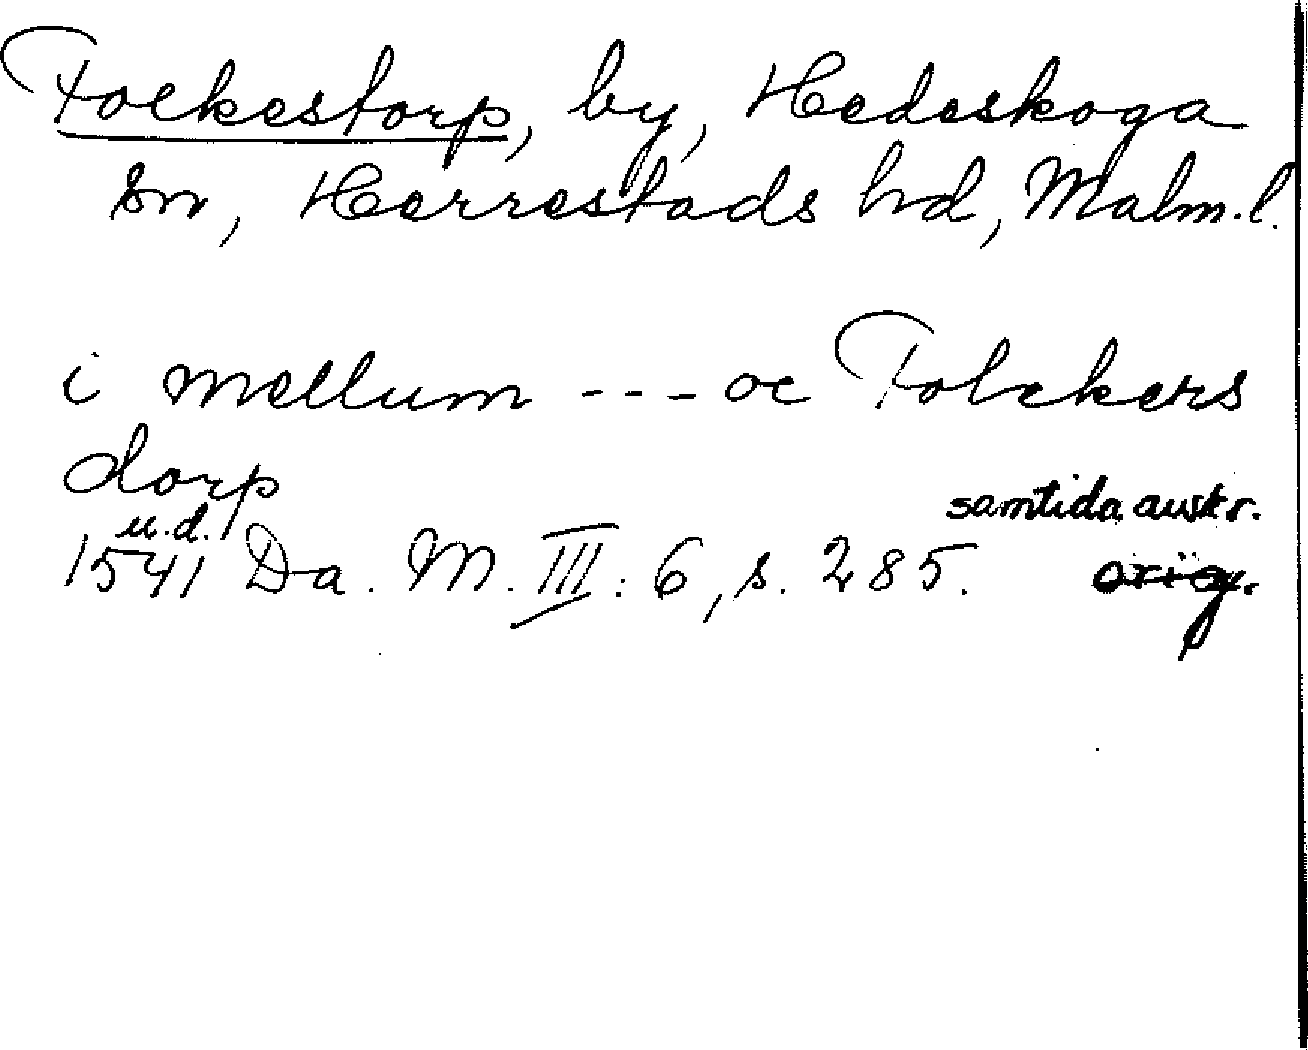 Folkestorp, by, Hedeskoga
sn, Herrestads hd, Malm.l.
i mellum --- oc Folckers
dorp
samtida avskr.
u.d.
1541 Da. M. III: 6, s. 285. orig.